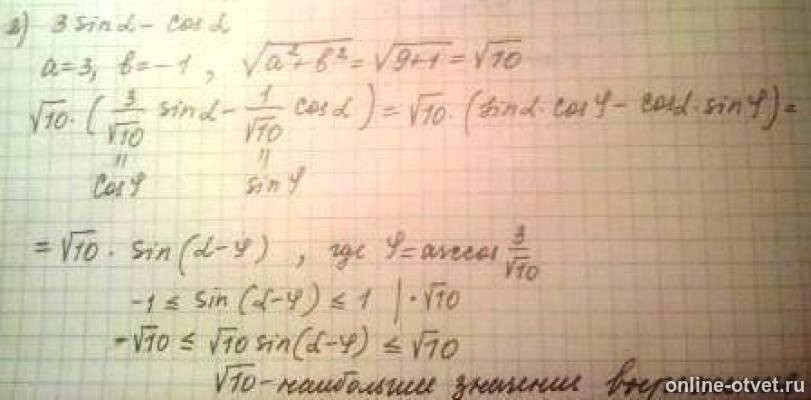 в) 3 sinα - cosα
a=3, b=-1, √(a²+b²)=√(9+1)=√10
√10·(3/√10 sinα - 1/√10 cosα)=√10·(sinα·cosφ - cosα·sinφ)=
" "
cosφ sinφ
=√10·sin(α-φ), где φ=arccos 3/√10
-1≤sin(α-φ)≤1 |·√10
-√10≤√10 sin(α-φ)≤√10
√10 - наибольшие значение
online-otvet.ru